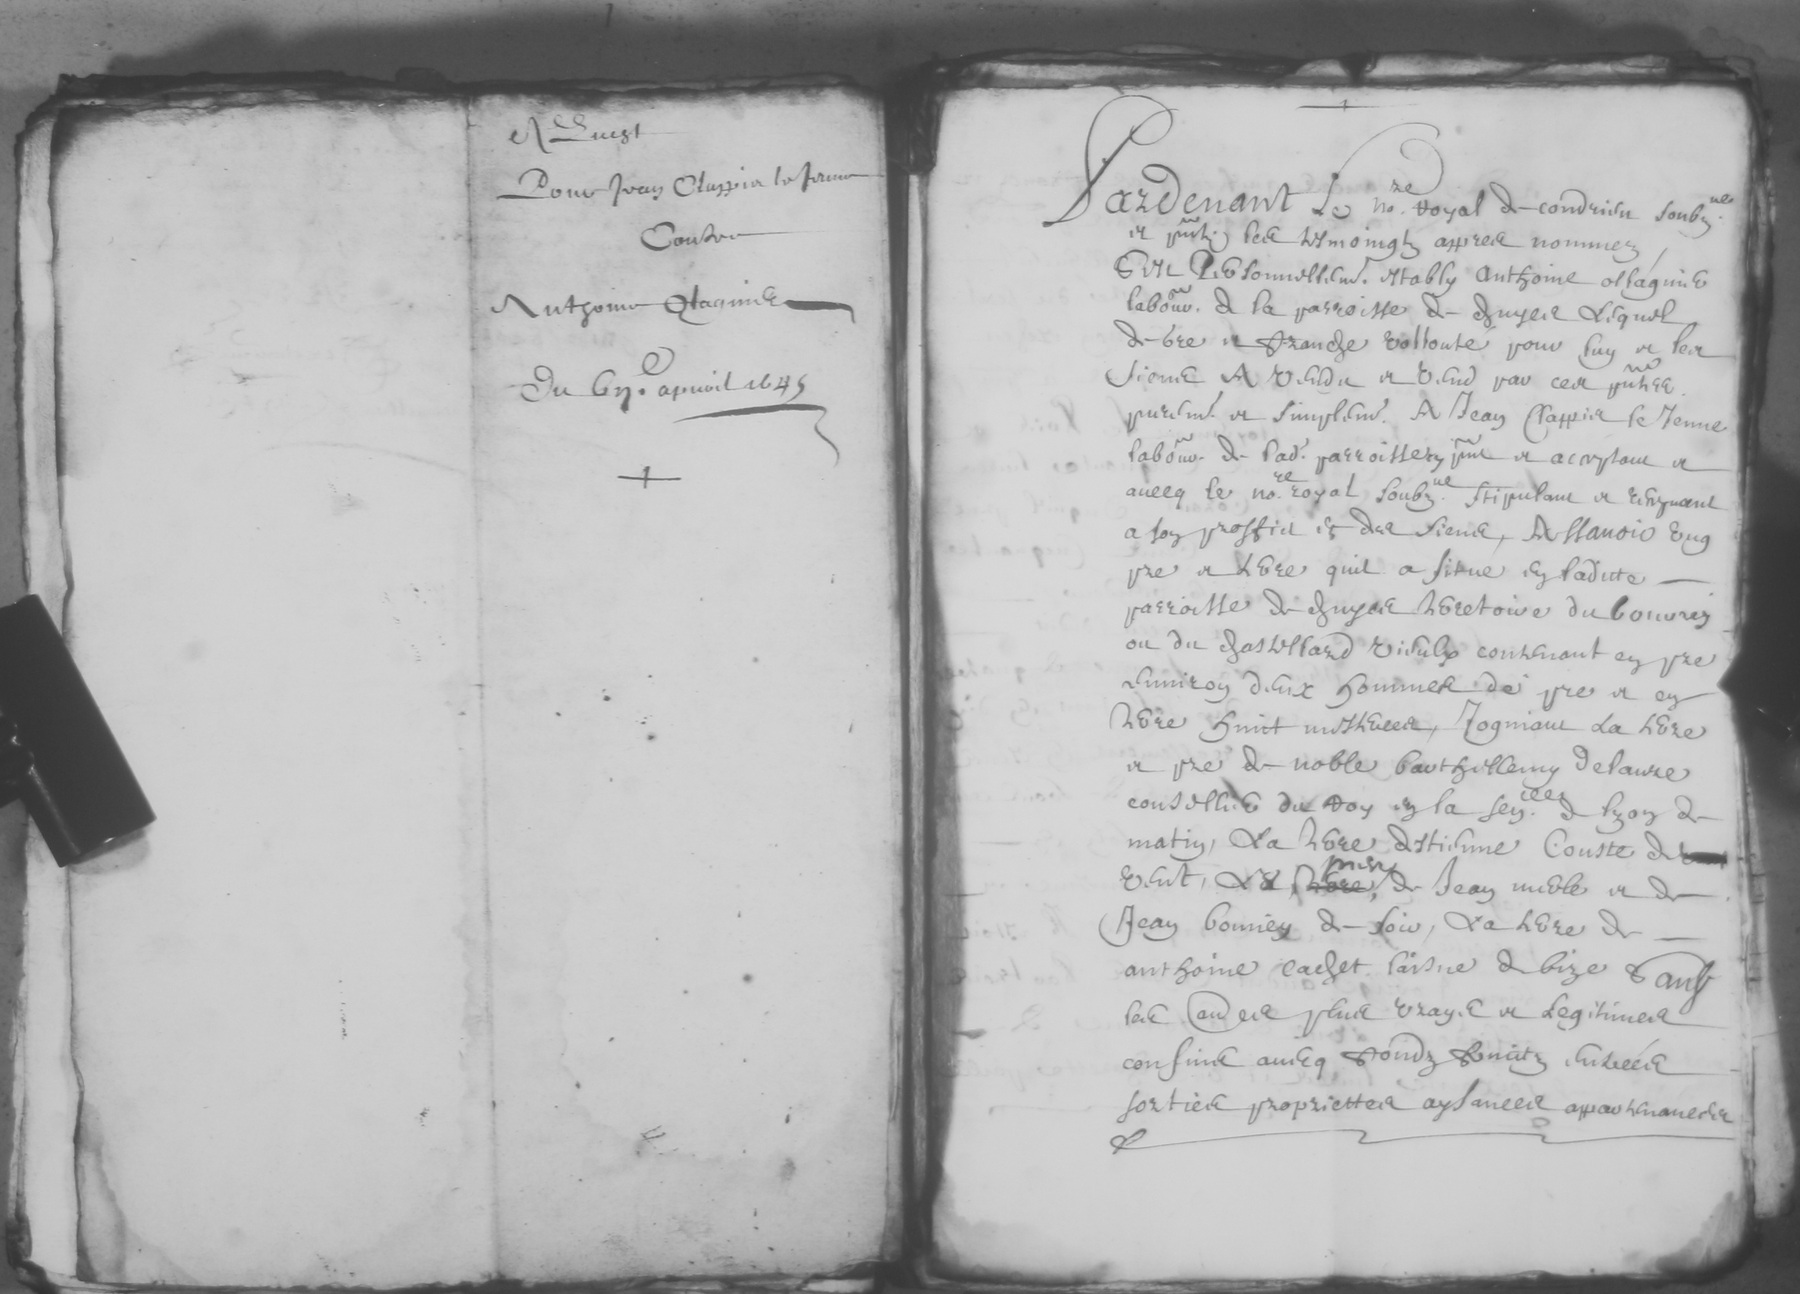 Pour Jean Chappia le Jeune
Contre
Anthoine Olagnier
Du 6e. apvril 1645
Pardevant le no.re Royal de condrieu soubz.né
et pntz. les tesmoingtz appres nommez
Personnellemt. estably Anthoine ollagnier
labour. de la parroisse de chuyes Lequel
de gre et franche vollonté pour luy et les
siens A vendu et vend par ces pntes.
puremt. et simplemt. A Jean Chappia le Jeune
labour. de lad. parroisse pnt et acceptant et
avecq le no.re royal soubz.né stipulant et
a son proffit et des siens, Assavoir ung
pre et terre quil a situe en ladicte
parroisse de chuyes terretoire du
ou du chastellard vieulx contenant en pre
environ deux hommes de pre et en
terre huict mestерées, Jognant La terre
et pre de noble barthellemy Delaure
conseller du Roy en la sen.cee de lyon de
matin, La terre destienne Couste de
vent, La terre, de Jean et de
Jean bonney de soir, La terre de
anthoine cachet laisne de bize Sauf
les plus vrayes et Legitimes
confins avecq fondz fruitz entrées
sorties proprietes aysances appartenances